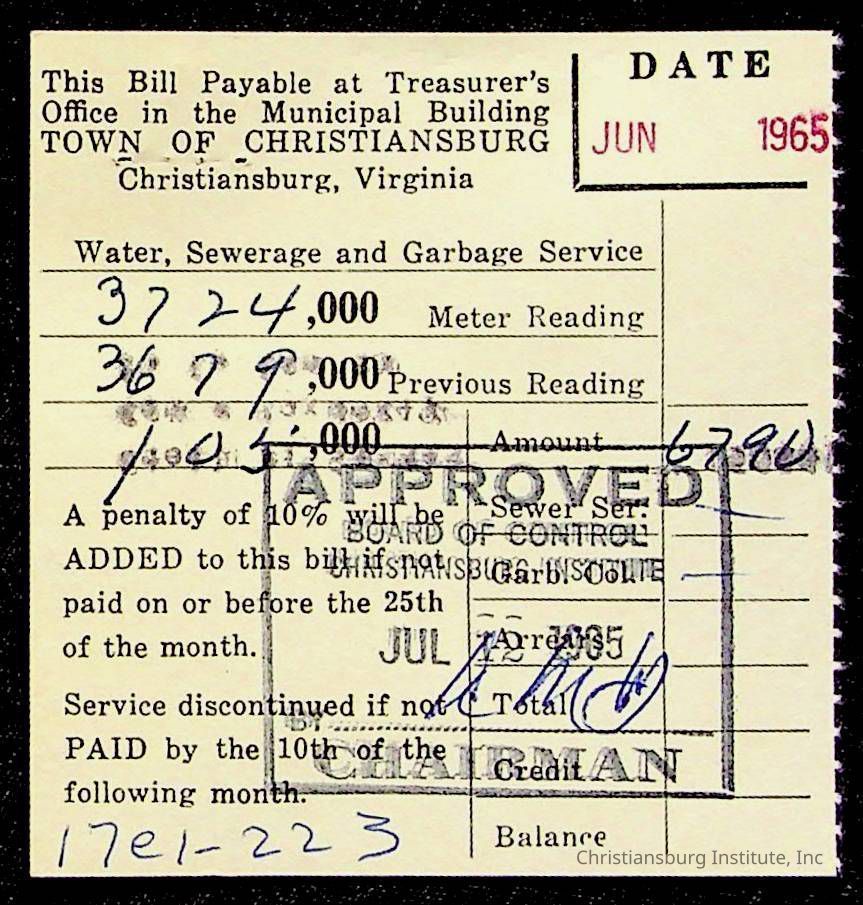 This Bill Payable at Treasurer's
Office in the Municipal Building
TOWN OF CHRISTIANSBURG
Christiansburg, Virginia
DATE
JUN 1965
Water, Sewerage and Garbage Service
3724,000 Meter Reading
3679,000 Previous Reading
105,000 Amount 6790
Sewer Ser.
Garb. Col.
Arrears
Total
Credit
Balance
A penalty of 10% will be
ADDED to this bill if not
paid on or before the 25th
of the month.
Service discontinued if not
PAID by the 10th of the
following month.
APPROVED
BOARD OF CONTROL
CHRISTIANSBURG INSTITUTE
JUL 12 1965
BY
CHAIRMAN
17e1-223
Christiansburg Institute, Inc